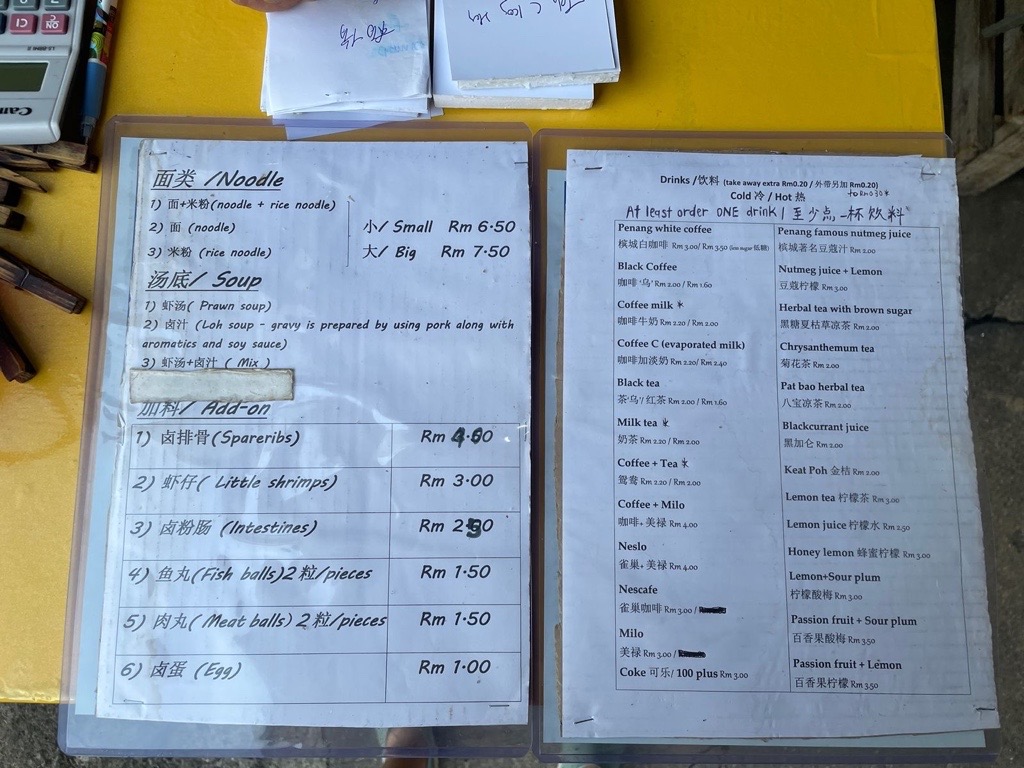 面类 /Noodle
1) 面+米粉(noodle + rice noodle)
2) 面 (noodle)
3) 米粉 (rice noodle)
小/ Small Rm 6.50
大/ Big Rm 7.50
汤底/ Soup
1) 虾汤( Prawn soup)
2) 卤汁 (Loh soup - gravy is prepared by using pork along with
aromatics and soy sauce)
3) 虾汤+卤汁 ( Mix )
加料/ Add-on
1) 卤排骨(Spareribs) Rm
2) 虾仔( Little shrimps) Rm 3.00
3) 卤粉肠 (Intestines) Rm
4) 鱼丸(Fish balls)2粒/pieces Rm 1.50
5) 肉丸( Meat balls) 2粒/pieces Rm 1.50
6) 卤蛋 (Egg) Rm 1.00
Drinks /饮料 (take away extra RM0.20 / 外带另加 RM0.20)
Cold 冷 / Hot 热
At least order ONE drink / 至少点一杯饮料*
Penang white coffee
槟城白咖啡 Rm 3.00/ Rm 3.50 (less sugar 低糖)
Black Coffee
咖啡 '乌' Rm 2.00 / Rm 1.60
Coffee milk *
咖啡牛奶 Rm 2.20 / Rm 2.00
Coffee C (evaporated milk)
咖啡加淡奶 Rm 2.20/ Rm 2.40
Black tea
茶'乌'/ 红茶 Rm 2.00 / Rm 1.60
Milk tea *
奶茶 Rm 2.20 / Rm 2.00
Coffee + Tea *
鸳鸯 Rm 2.20 / Rm 2.00
Coffee + Milo
咖啡+ 美禄 Rm 4.00
Neslo
雀巢+ 美禄 Rm 4.00
Nescafe
雀巢咖啡 Rm 3.00 /
Milo
美禄 Rm 3.00 /
Coke 可乐/ 100 plus Rm 3.00
Penang famous nutmeg juice
槟城著名豆蔻汁 Rm 2.00
Nutmeg juice + Lemon
豆蔻柠檬 Rm 3.00
Herbal tea with brown sugar
黑糖夏枯草凉茶 Rm 2.00
Chrysanthemum tea
菊花茶 Rm 2.00
Pat bao herbal tea
八宝凉茶 Rm 2.00
Blackcurrant juice
黑加仑 Rm 2.00
Keat Poh 金桔 Rm 2.00
Lemon tea 柠檬茶 Rm 3.00
Lemon juice 柠檬水 Rm 2.50
Honey lemon 蜂蜜柠檬 Rm 3.00
Lemon+Sour plum
柠檬酸梅 Rm 3.00
Passion fruit + Sour plum
百香果酸梅 Rm 3.50
Passion fruit + Lemon
百香果柠檬 Rm 3.50